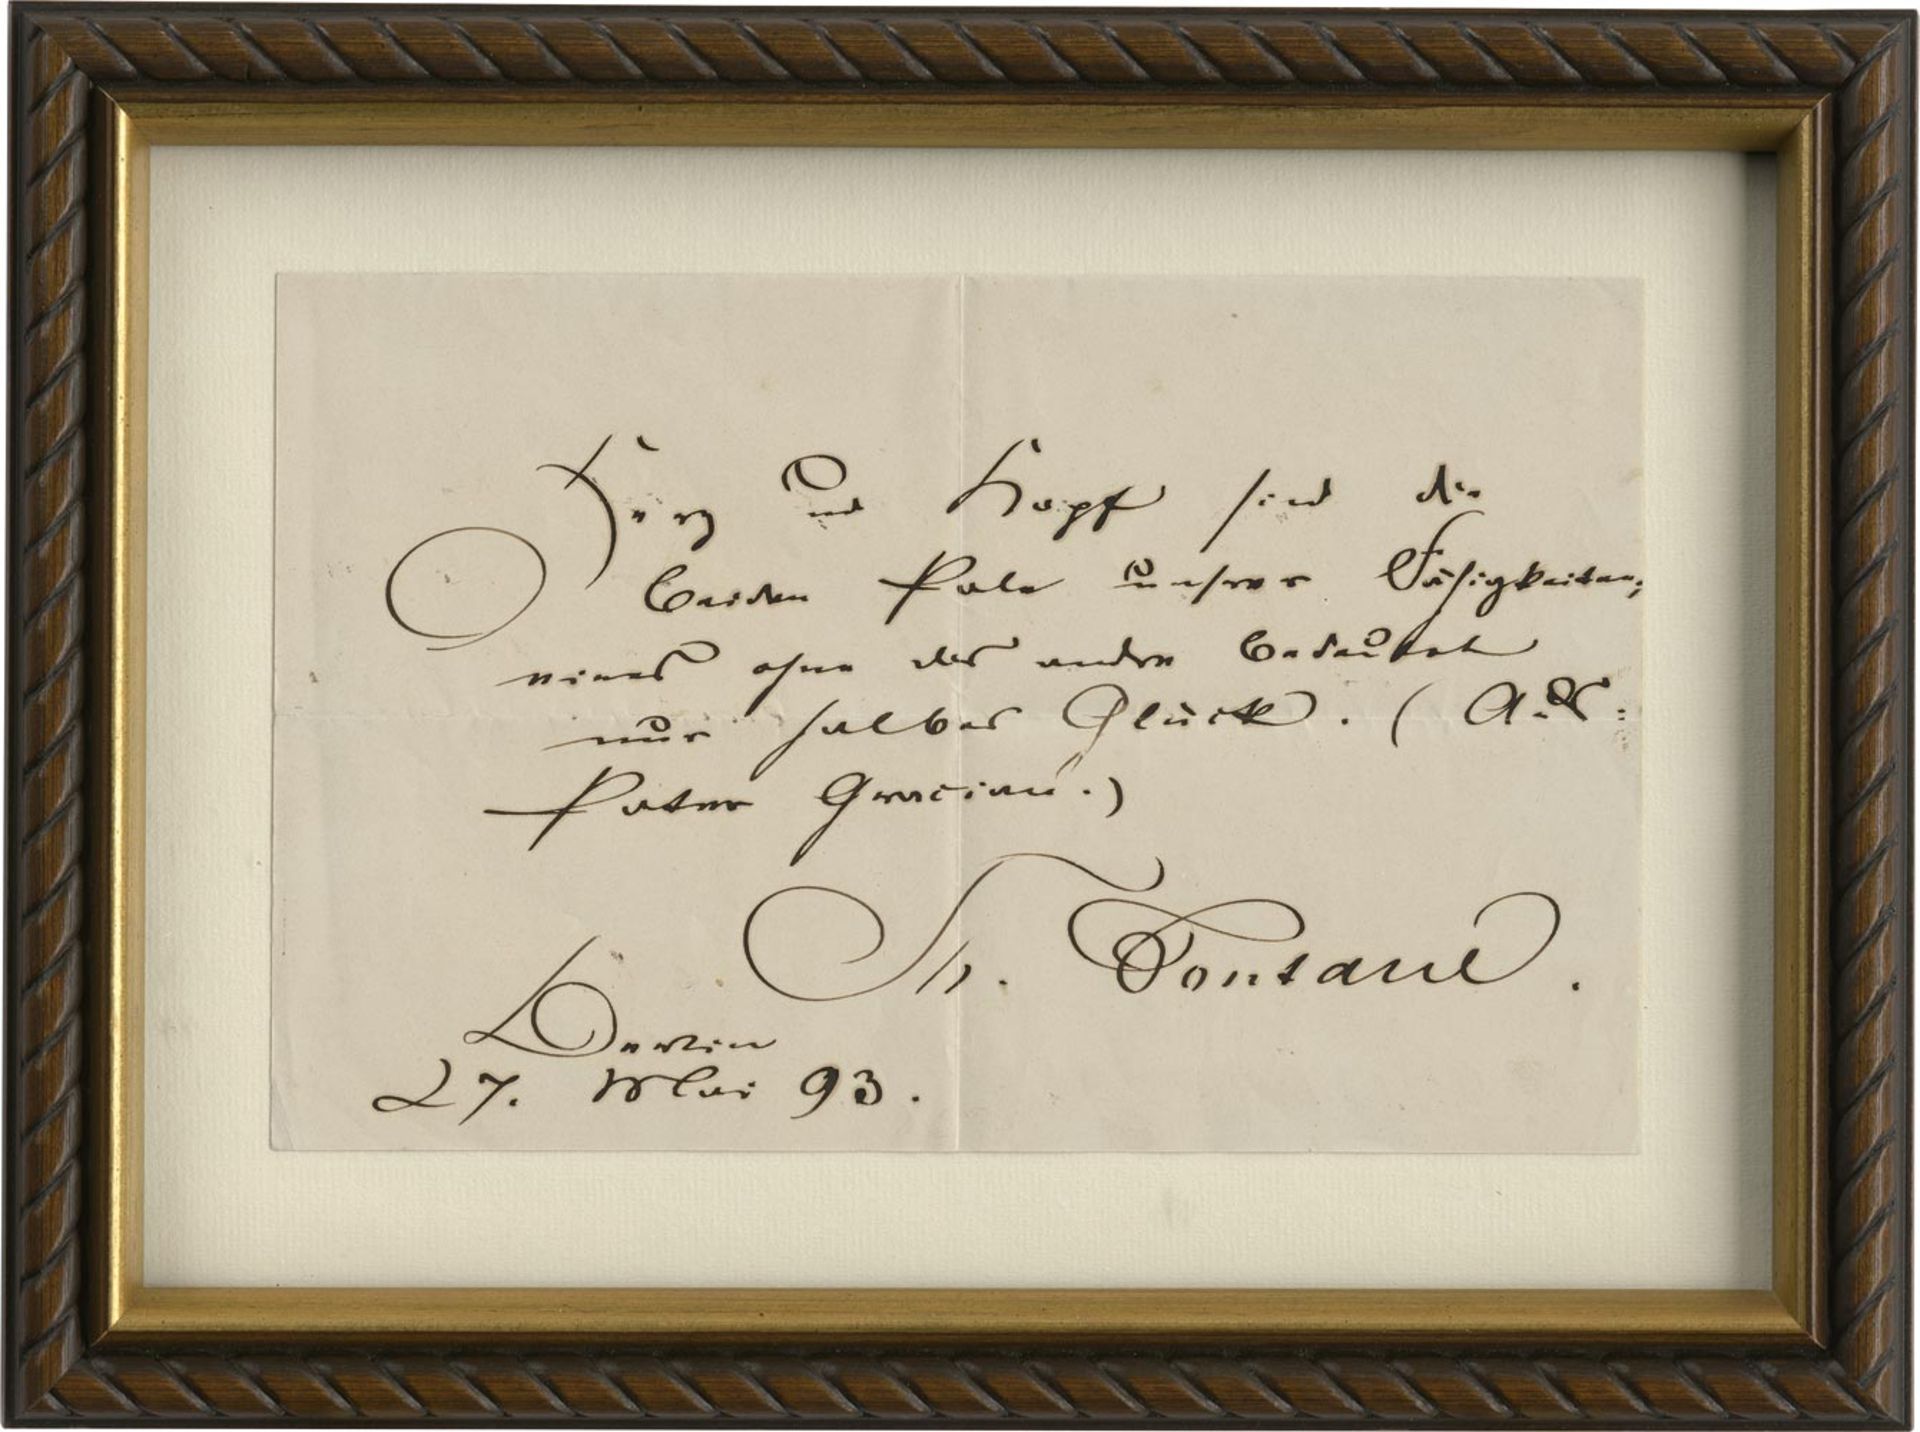 Herz und Kopf sind die
beiden Pole unsrer Fähigkeiten;
eines ohne das andre bedeutet
nur halbes Glück. (Aus:
Pater Gracian.)
Th. Fontane.
Berlin
27. Mai 93.